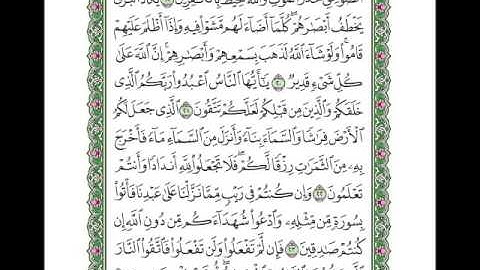 يَخْطَفُ أَبْصَٰرَهُمْ كُلَّمَآ أَضَآءَ لَهُم مَّشَوْا۟ فِيهِ وَإِذَآ أَظْلَمَ عَلَيْهِمْ
قَامُوا۟ وَلَوْ شَآءَ ٱللَّهُ لَذَهَبَ بِسَمْعِهِمْ وَأَبْصَٰرِهِمْ إِنَّ ٱللَّهَ عَلَىٰ
كُلِّ شَىْءٍ قَدِيرٌ ٢٠ يَٰٓأَيُّهَا ٱلنَّاسُ ٱعْبُدُوا۟ رَبَّكُمُ ٱلَّذِى
خَلَقَكُمْ وَٱلَّذِينَ مِن قَبْلِكُمْ لَعَلَّكُمْ تَتَّقُونَ ٢١ ٱلَّذِى جَعَلَ لَكُمُ
ٱلْأَرْضَ فِرَٰشًا وَٱلسَّمَآءَ بِنَآءً وَأَنزَلَ مِنَ ٱلسَّمَآءِ مَآءً فَأَخْرَجَ
بِهِۦ مِنَ ٱلثَّمَرَٰتِ رِزْقًا لَّكُمْ فَلَا تَجْعَلُوا۟ لِلَّهِ أَندَادًا وَأَنتُمْ
تَعْلَمُونَ ٢٢ وَإِن كُنتُمْ فِى رَيْبٍ مِّمَّا نَزَّلْنَا عَلَىٰ عَبْدِنَا فَأْتُوا۟
بِسُورَةٍ مِّن مِّثْلِهِۦ وَٱدْعُوا۟ شُهَدَآءَكُم مِّن دُونِ ٱللَّهِ إِن
كُنتُمْ صَٰدِقِينَ ٢٣ فَإِن لَّمْ تَفْعَلُوا۟ وَلَن تَفْعَلُوا۟ فَٱتَّقُوا۟ ٱلنَّارَ